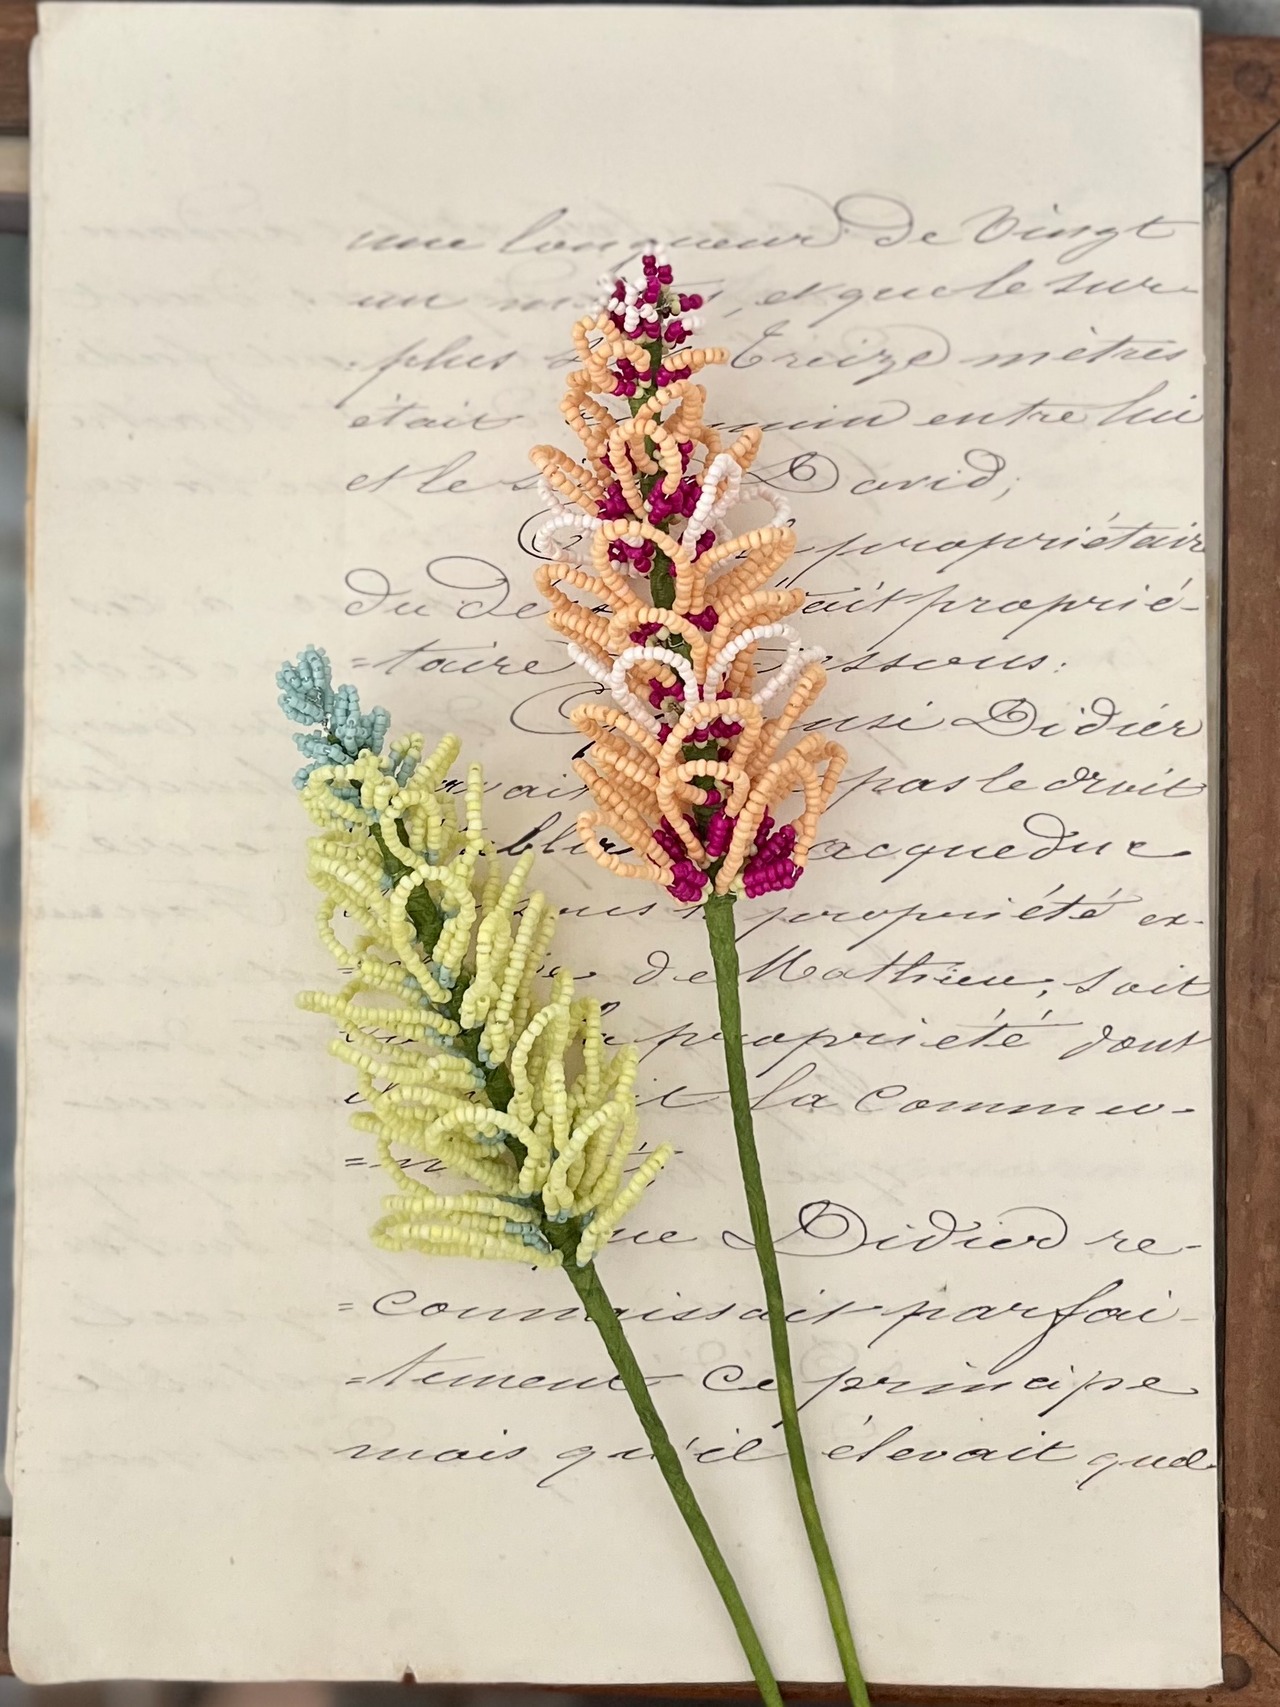 une longueur de Vingt
un m , et que le sur-
plus Treize mètres
était min entre lui
et le S David;
propriétair
du de tait proprié-
=taire essous:
nsi Didier
vait pas le droit
blir acqueduc
sous propriété ex-
= de Mathieu; soit
la propriété dont
it la commu-
=n té
ue Didier re-
=connaissait parfai-
=tement ce principe
mais qu'il élevait quel